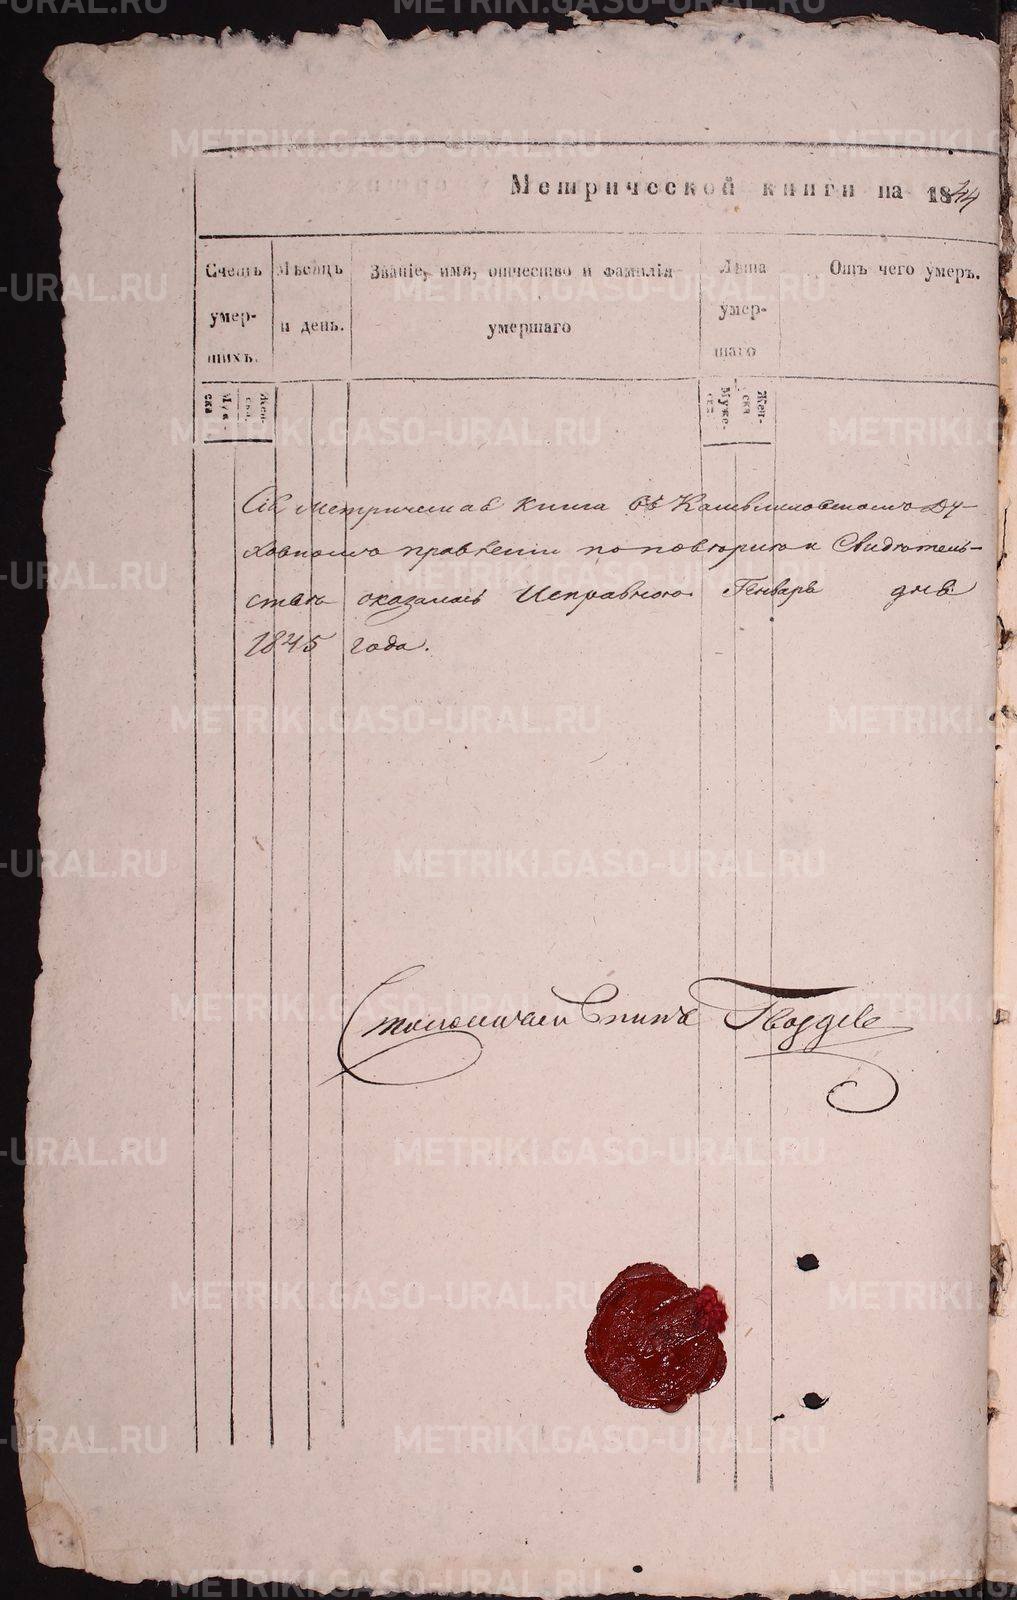 Метрической книги на 1844
Счетъ умершихъ.
Мѣсяцъ и день.
Званіе, имя, отчество и фамилія умершаго
Лѣта умершаго
Отъ чего умеръ.
Муже-
ска
Жен-
ска.
Муже-
ска
Жен-
ска
Сія Метрическая книга въ Камышловскомъ Ду-
ховномъ правленіи по повторик Свидѣтель-
ству оказалась Исправною. Генварь дня
1845 года.
Гвоздев
METRIKI.GASO-URAL.RU